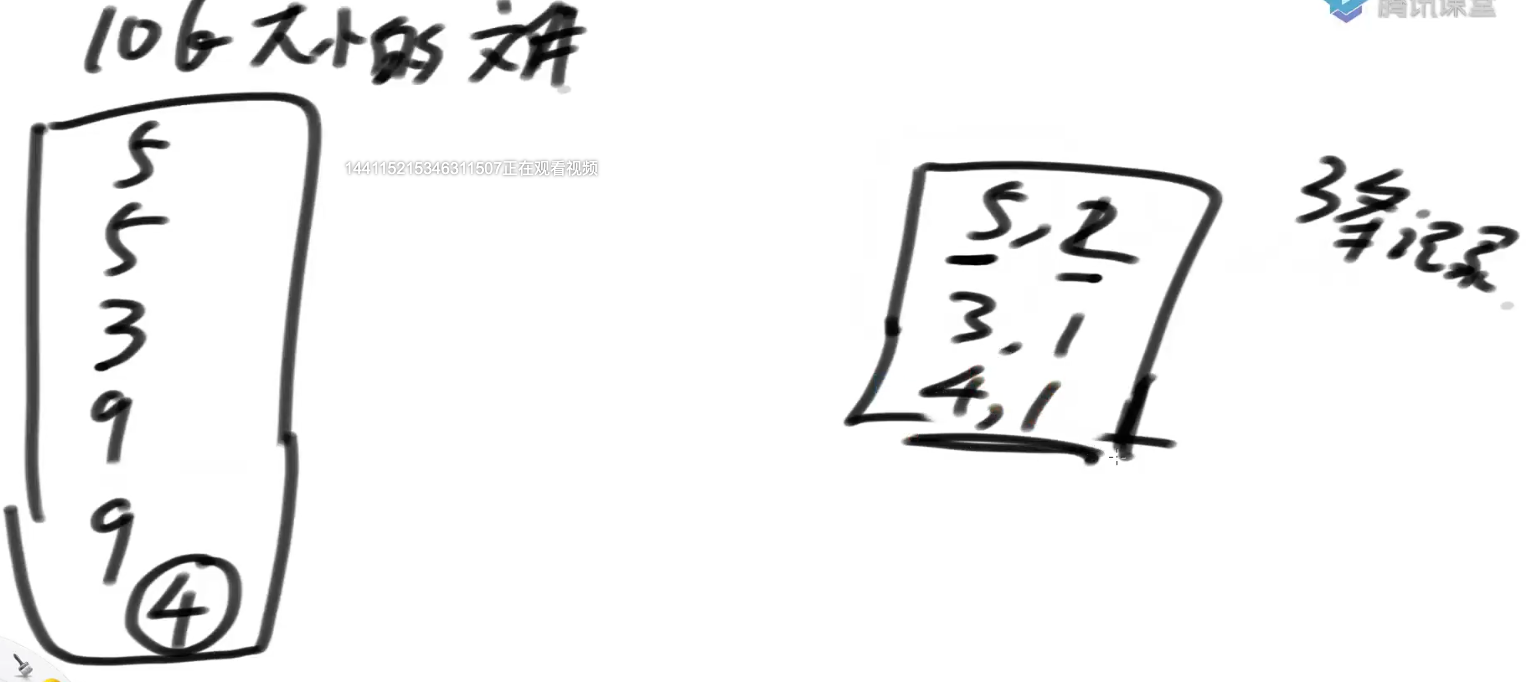 10G大小的文件
腾讯课堂
5
5
3
9
9
4
144115215346311507正在观看视频
5,2
3,1
4,1
3条记录